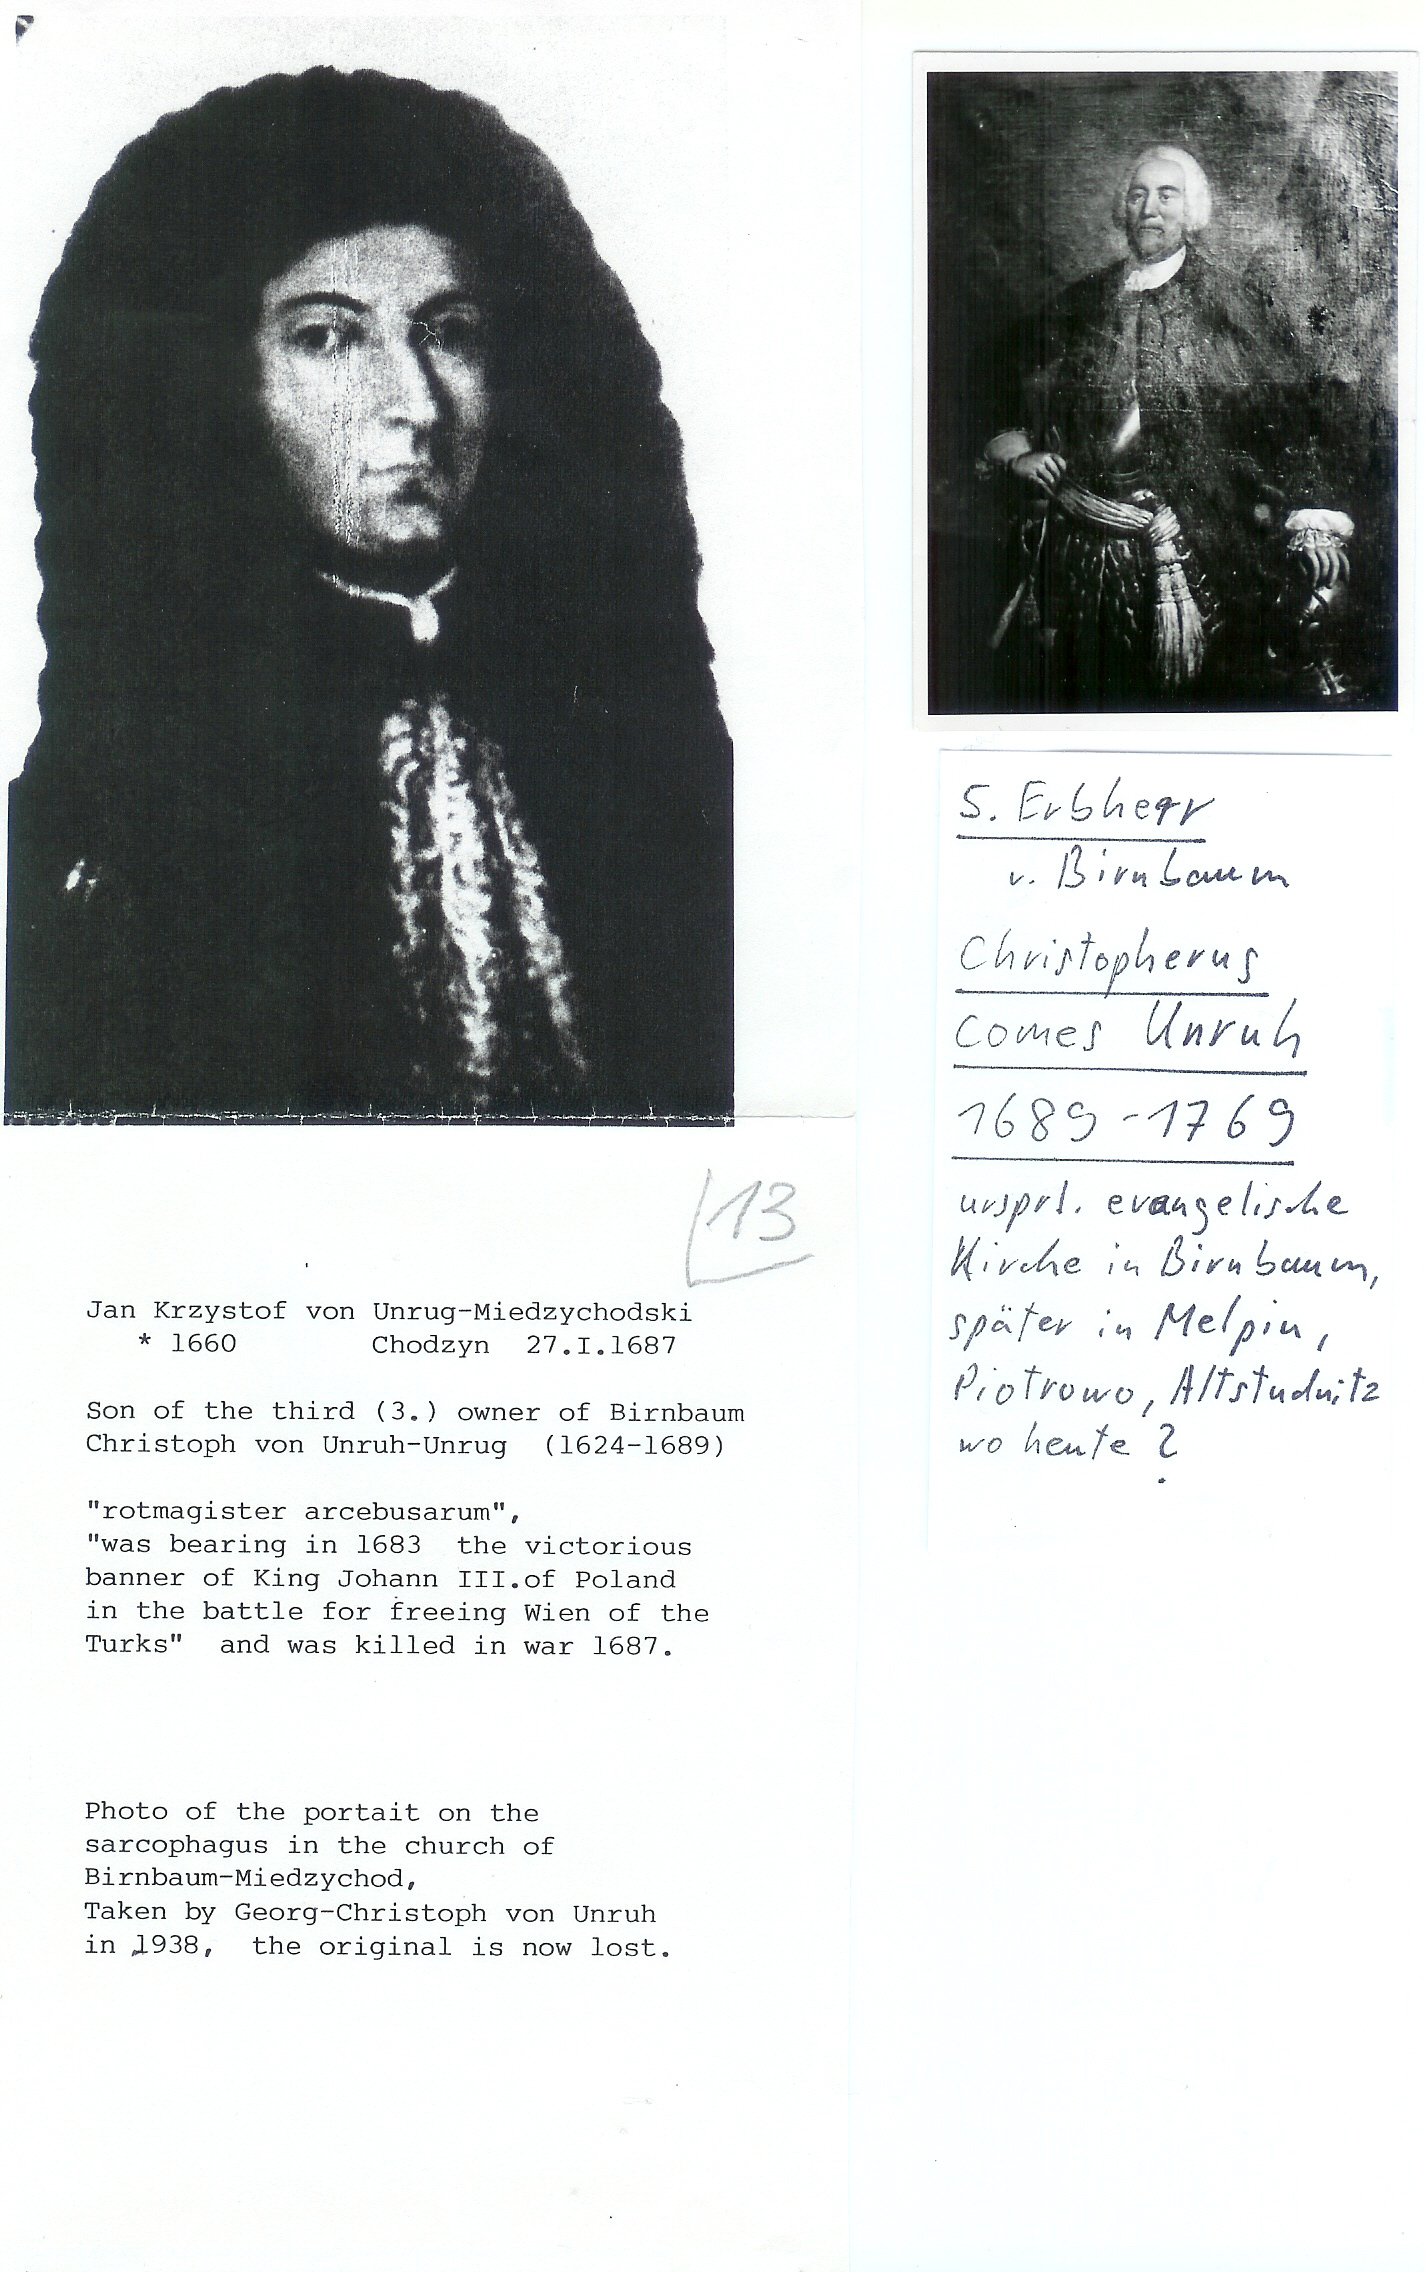 13
Jan Krzystof von Unrug-Miedzychodski
* 1660 Chodzyn 27.I.1687
Son of the third (3.) owner of Birnbaum
Christoph von Unruh-Unrug (1624-1689)
"rotmagister arcebusarum",
"was bearing in 1683 the victorious
banner of King Johann III.of Poland
in the battle for freeing Wien of the
Turks" and was killed in war 1687.
Photo of the portait on the
sarcophagus in the church of
Birnbaum-Miedzychod,
Taken by Georg-Christoph von Unruh
in 1938, the original is now lost.
5. Erbherr
v. Birnbaum
Christopherus
comes Unruh
1689-1769
ursprl. evangelische
Kirche in Birnbaum,
später in Melpin,
Piotrowo, Altstudnitz
wo heute ?